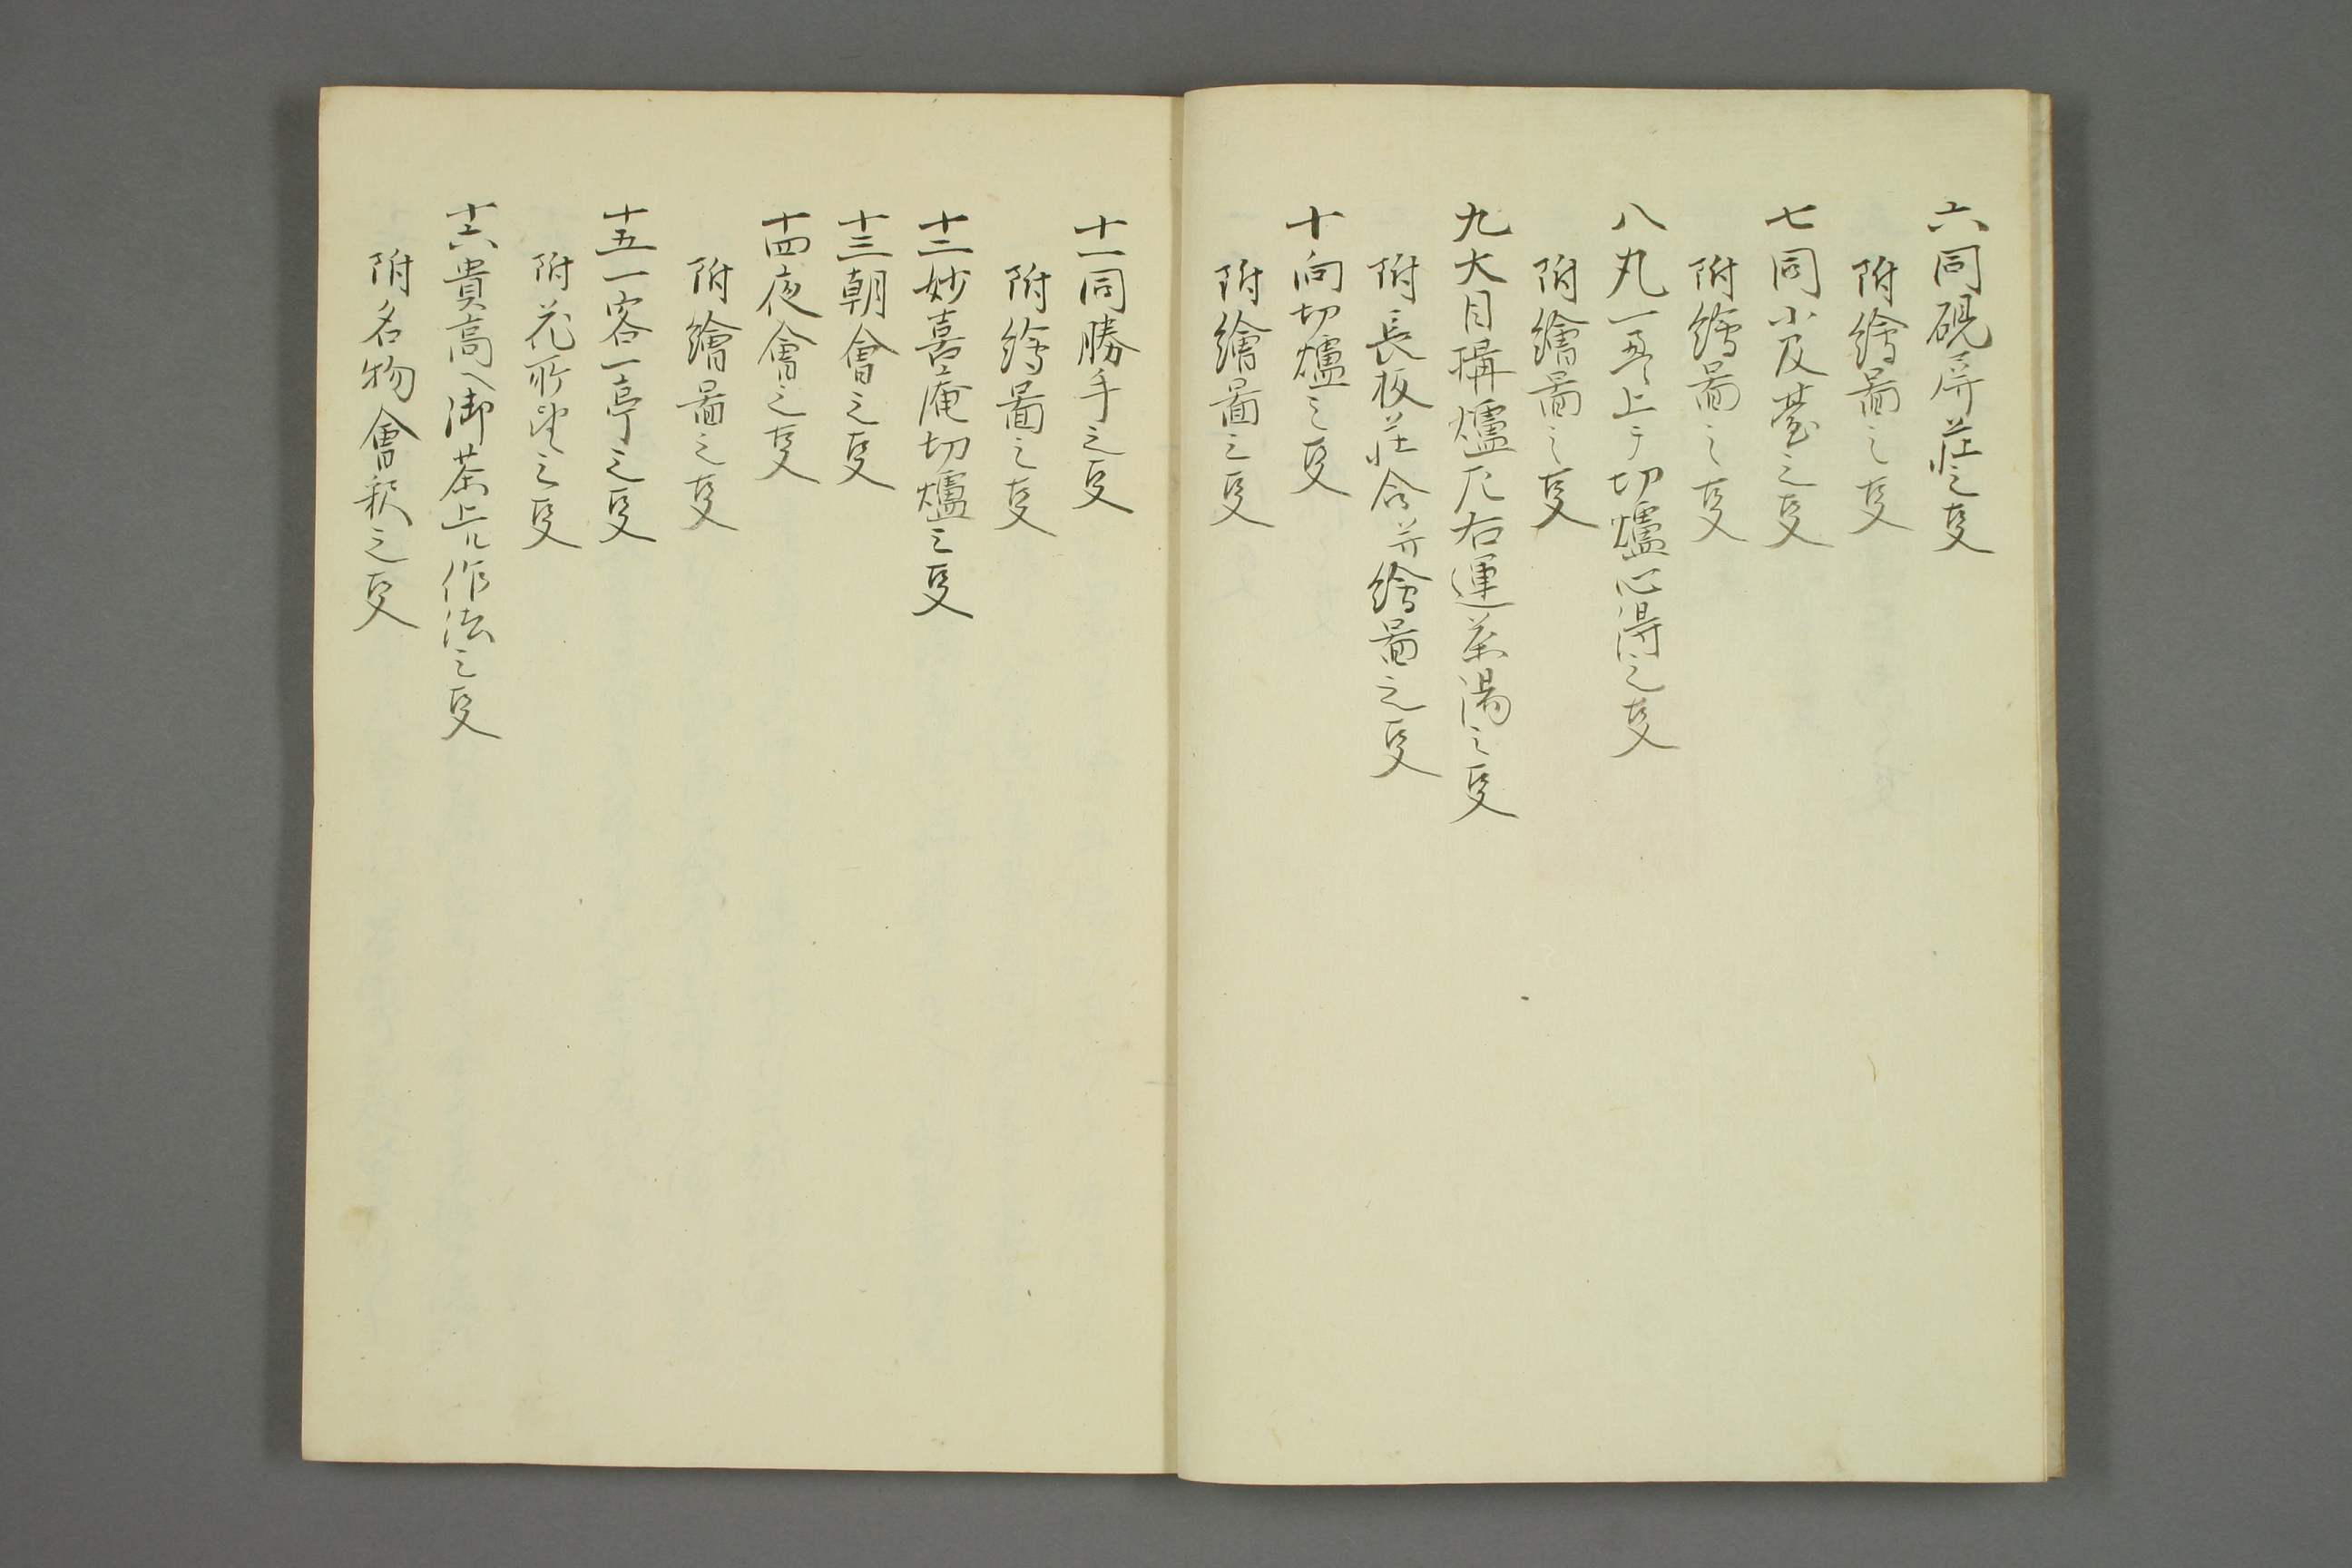 六同硯屏荘之叓
附繪圖之叓
七同小及臺之叓
附繪圖之叓
八丸一畳上ケ切爐心得之叓
附繪圖之叓
九大目搆爐左右運茶湯之叓
附長板荘合并繪圖之叓
十向切爐之叓
附繪圖之叓
十一同勝手之叓
附繪圖之叓
十二妙喜庵切爐之叓
十三朝會之叓
十四夜會之叓
附繪圖之叓
十五一客一亭之叓
附花所望之叓
十六貴高へ御茶上ル作法之叓
附名物會釈之叓